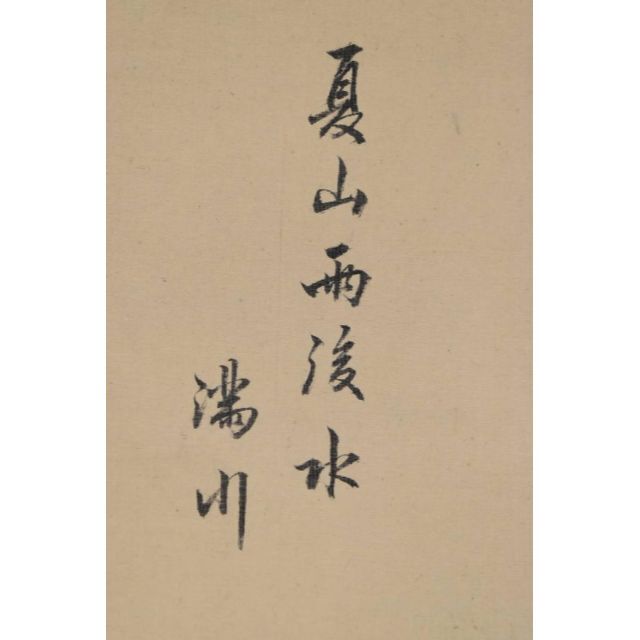 夏山雨後水
滿川